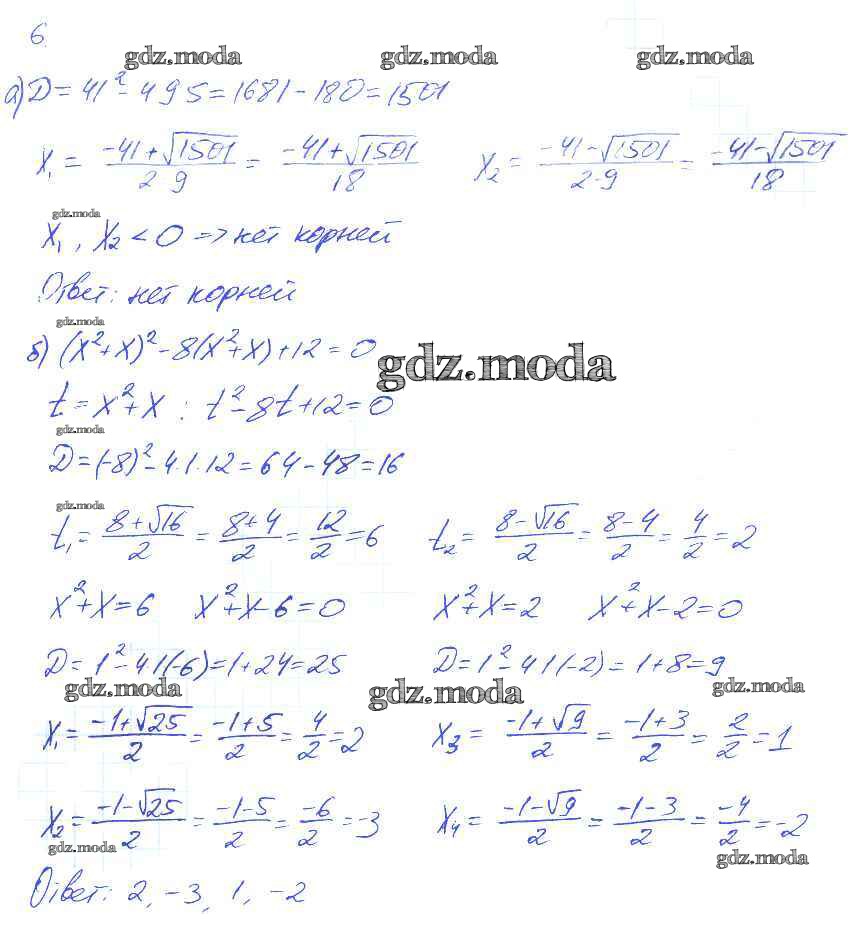 6
gdz.moda gdz.moda gdz.moda
а) D = 41² - 4 9 5 = 1681 - 180 = 1501
x₁ = (-41 + √1501)/(2 9) = (-41 + √1501)/18 x₂ = (-41 - √1501)/(2·9) = (-41 - √1501)/18
gdz.moda
x₁, x₂ < 0 => нет корней
Ответ: нет корней
gdz.moda
б) (x² + x)² - 8(x² + x) + 12 = 0
gdz.moda
t = x² + x : t² - 8t + 12 = 0
gdz.moda
D = (-8)² - 4·1·12 = 64 - 48 = 16
gdz.moda
t₁ = (8 + √16)/2 = (8 + 4)/2 = 12/2 = 6 t₂ = (8 - √16)/2 = (8 - 4)/2 = 4/2 = 2
x² + x = 6 x² + x - 6 = 0 x² + x = 2 x² + x - 2 = 0
D = 1² - 4 1 (-6) = 1 + 24 = 25 D = 1² - 4 1 (-2) = 1 + 8 = 9
gdz.moda gdz.moda gdz.moda
x₁ = (-1 + √25)/2 = (-1 + 5)/2 = 4/2 = 2 x₃ = (-1 + √9)/2 = (-1 + 3)/2 = 2/2 = 1
x₂ = (-1 - √25)/2 = (-1 - 5)/2 = -6/2 = -3 x₄ = (-1 - √9)/2 = (-1 - 3)/2 = -4/2 = -2
gdz.moda gdz.moda
Ответ: 2, -3, 1, -2